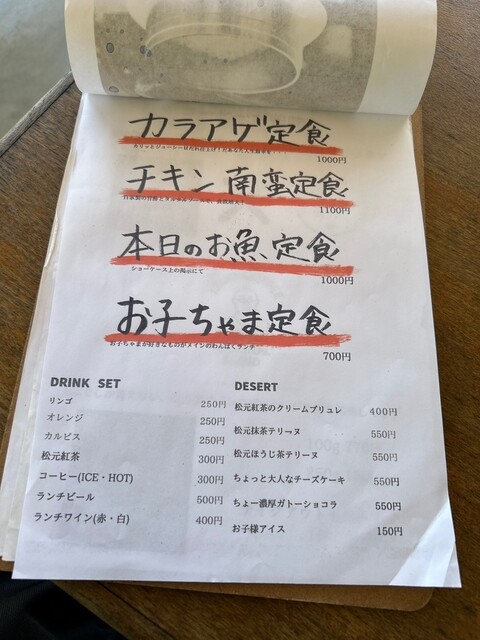 カラアゲ定食
1000円
チキン南蛮定食
1100円
本日のお魚定食
ショーケース上の掲示にて
1000円
お子ちゃま定食
お子ちゃまが好きなものがメインのわんぱくランチ
700円
DRINK SET
リンゴ 250円
オレンジ 250円
カルピス 250円
松元紅茶 300円
コーヒー(ICE・HOT) 300円
ランチビール 500円
ランチワイン(赤・白) 400円
DESERT
松元紅茶のクリームブリュレ 400円
松元抹茶テリーヌ 550円
松元ほうじ茶テリーヌ 550円
ちょっと大人なチーズケーキ 550円
ちょー濃厚ガトーショコラ 550円
お子様アイス 150円